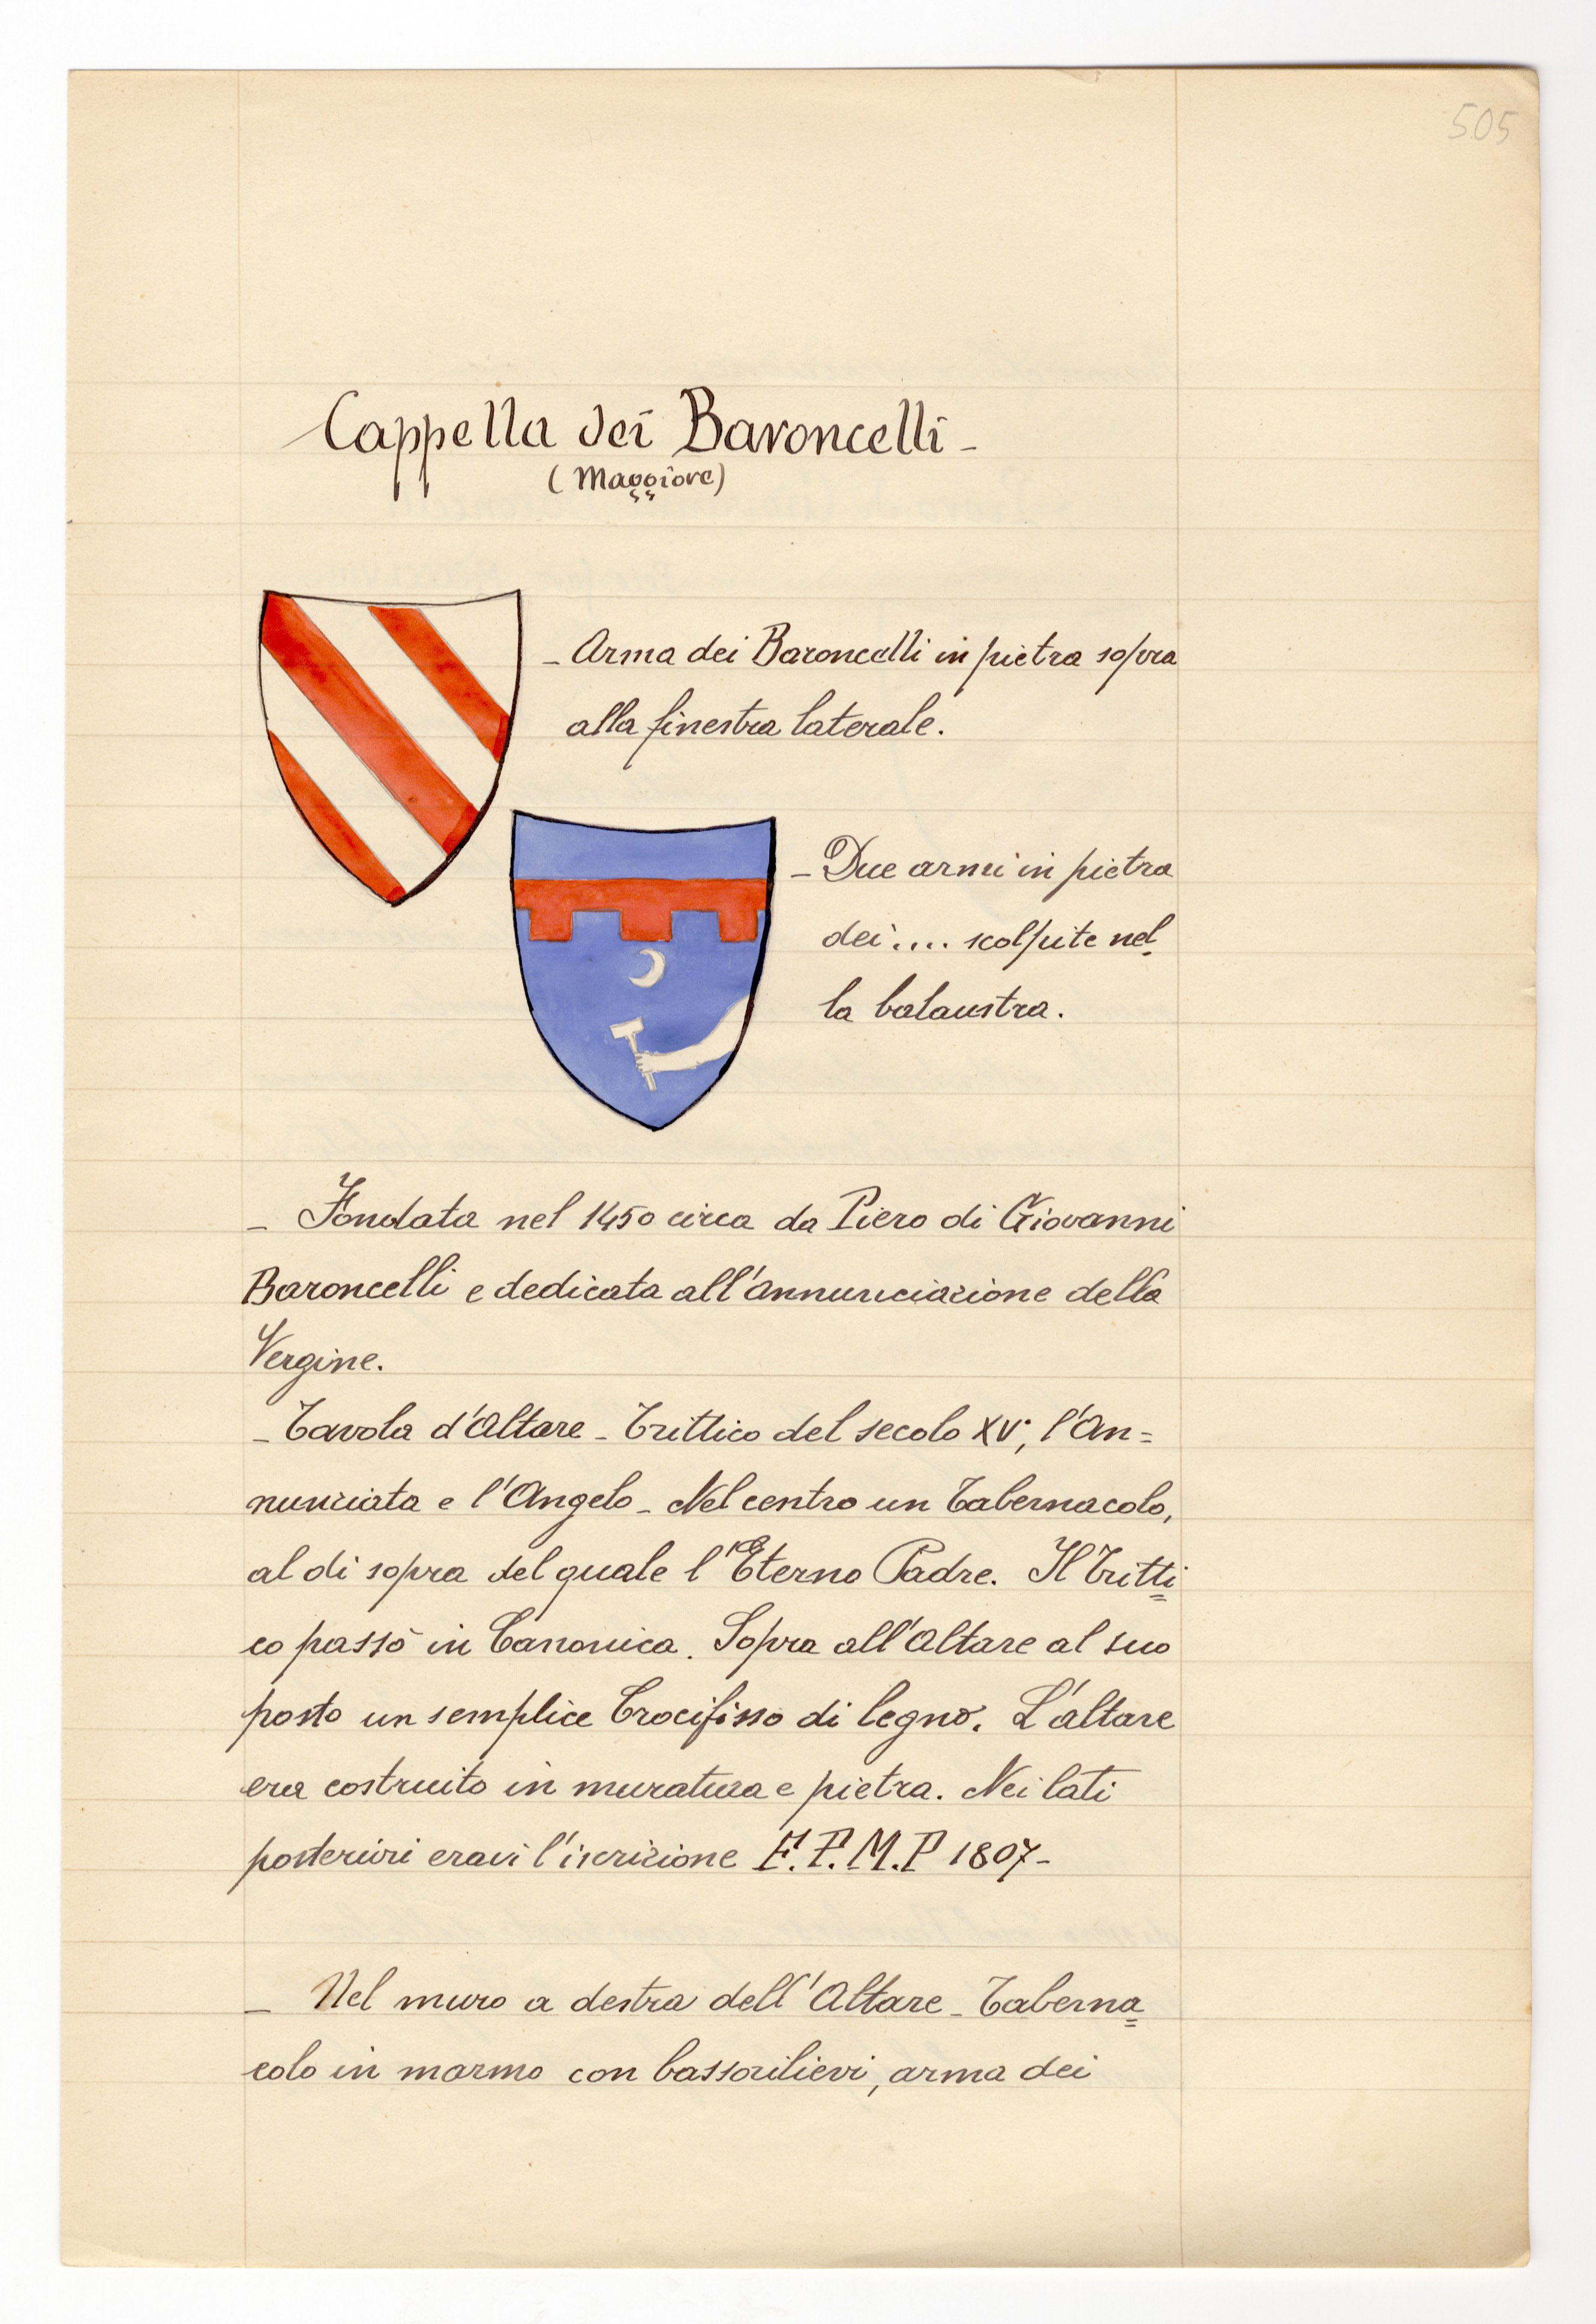 505
Cappella dei Baroncelli -
(Maggiore)
- Arma dei Baroncelli in pietra sopra
alla finestra laterale.
- Due armi in pietra
dei .... scolpite nel
la balaustra.
- Fondata nel 1450 circa da Piero di Giovanni
Baroncelli e dedicata all'Annunciazione della
Vergine.
- Tavola d'Altare - Trittico del secolo XV°, l'An=
nunziata e l'Angelo - Nel centro un Tabernacolo,
al di sopra del quale l'Eterno Padre. Il Tritti
co passò in Canonica. Sopra all'Altare al suo
posto un semplice Crocifisso di legno. L'altare
era costruito in muratura e pietra. Nei lati
posteriori eravi l'iscrizione F.P.M.P 1807 -
- Nel muro a destra dell'Altare - Taberna
colo in marmo con bassorilievi, arma dei